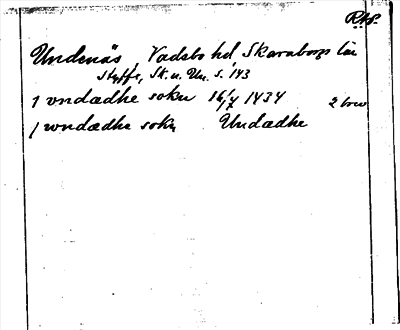 RAP.
Undenäs, Vadsbo hd, Skaraborgs län
Styffe, Sk. u. Un. s. 143
1 vndædhe sokn 16/7 1434 2 brev
1 wndædhe sokn Undædhe